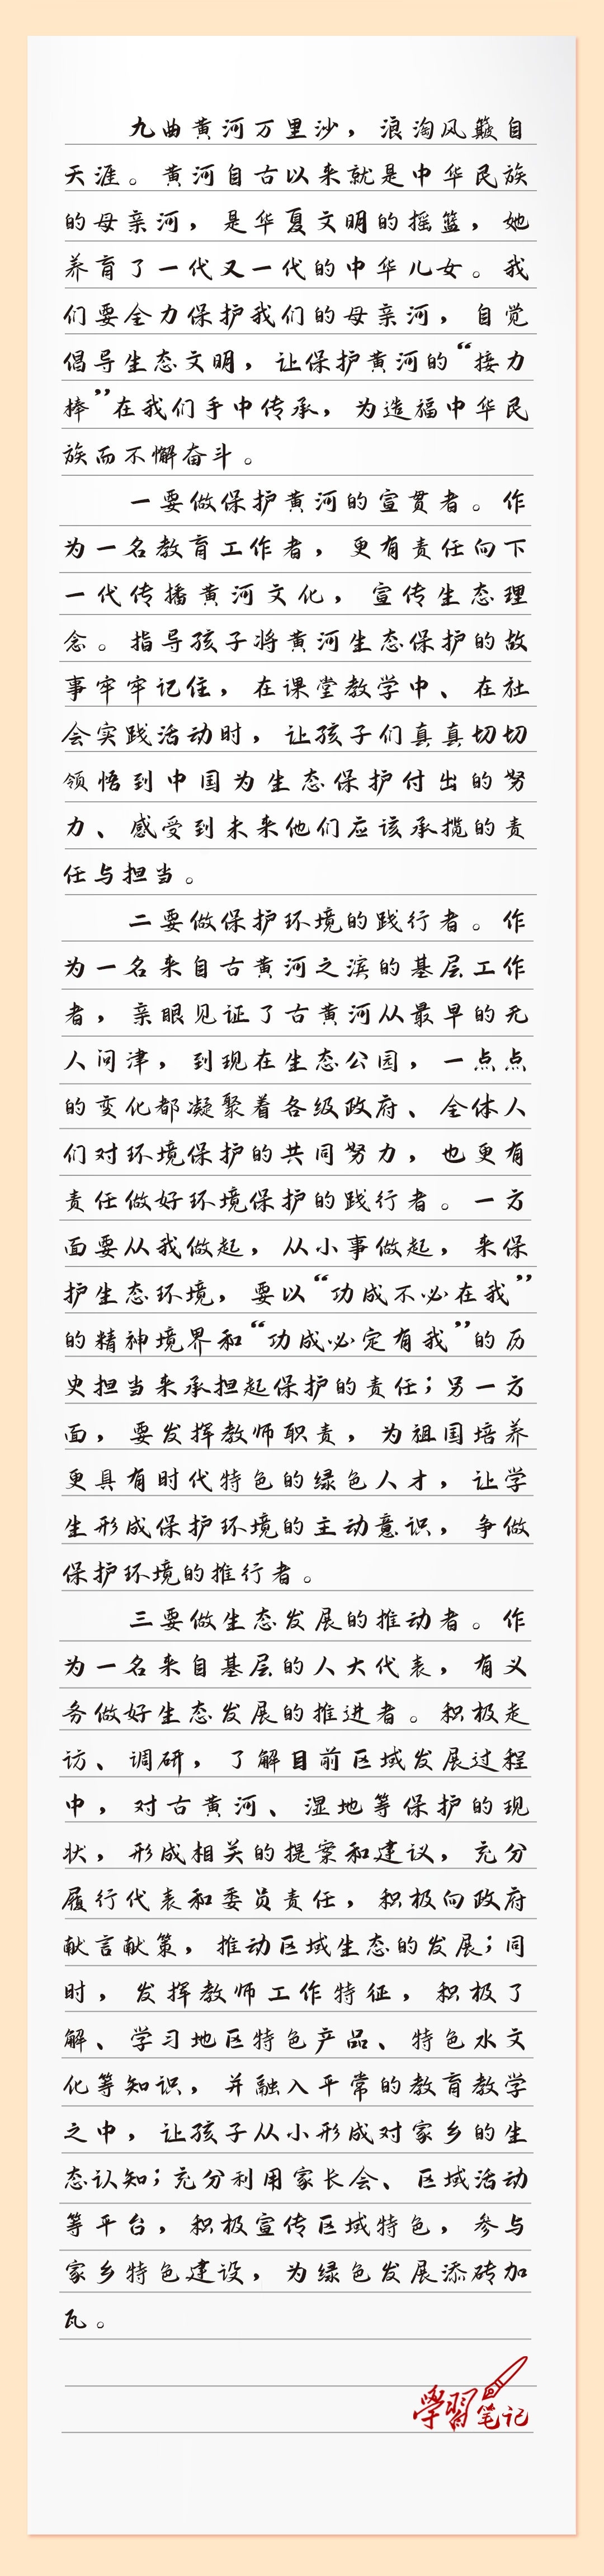 九曲黄河万里沙，浪淘风簸自
天涯。黄河自古以来就是中华民族
的母亲河，是华夏文明的摇篮，她
养育了一代又一代的中华儿女。我
们要全力保护我们的母亲河，自觉
倡导生态文明，让保护黄河的“接力
棒”在我们手中传承，为造福中华民
族而不懈奋斗。
一要做保护黄河的宣贯者。作
为一名教育工作者，更有责任向下
一代传播黄河文化，宣传生态理
念。指导孩子将黄河生态保护的故
事牢牢记住，在课堂教学中、在社
会实践活动时，让孩子们真真切切
领悟到中国为生态保护付出的努
力、感受到未来他们应该承揽的责
任与担当。
二要做保护环境的践行者。作
为一名来自古黄河之滨的基层工作
者，亲眼见证了古黄河从最早的无
人问津，到现在生态公园，一点点
的变化都凝聚着各级政府、全体人
们对环境保护的共同努力，也更有
责任做好环境保护的践行者。一方
面要从我做起，从小事做起，来保
护生态环境，要以“功成不必在我”
的精神境界和“功成必定有我”的历
史担当来承担起保护的责任；另一方
面，要发挥教师职责，为祖国培养
更具有时代特色的绿色人才，让学
生形成保护环境的主动意识，争做
保护环境的推行者。
三要做生态发展的推动者。作
为一名来自基层的人大代表，有义
务做好生态发展的推进者。积极走
访、调研，了解目前区域发展过程
中，对古黄河、湿地等保护的现
状，形成相关的提案和建议，充分
履行代表和委员责任，积极向政府
献言献策，推动区域生态的发展；同
时，发挥教师工作特征，积极了
解、学习地区特色产品、特色水文
化等知识，并融入平常的教育教学
之中，让孩子从小形成对家乡的生
态认知；充分利用家长会、区域活动
等平台，积极宣传区域特色，参与
家乡特色建设，为绿色发展添砖加
瓦。
學習笔记